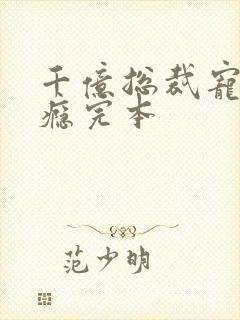 千億总裁寵
瘾完本
范少明